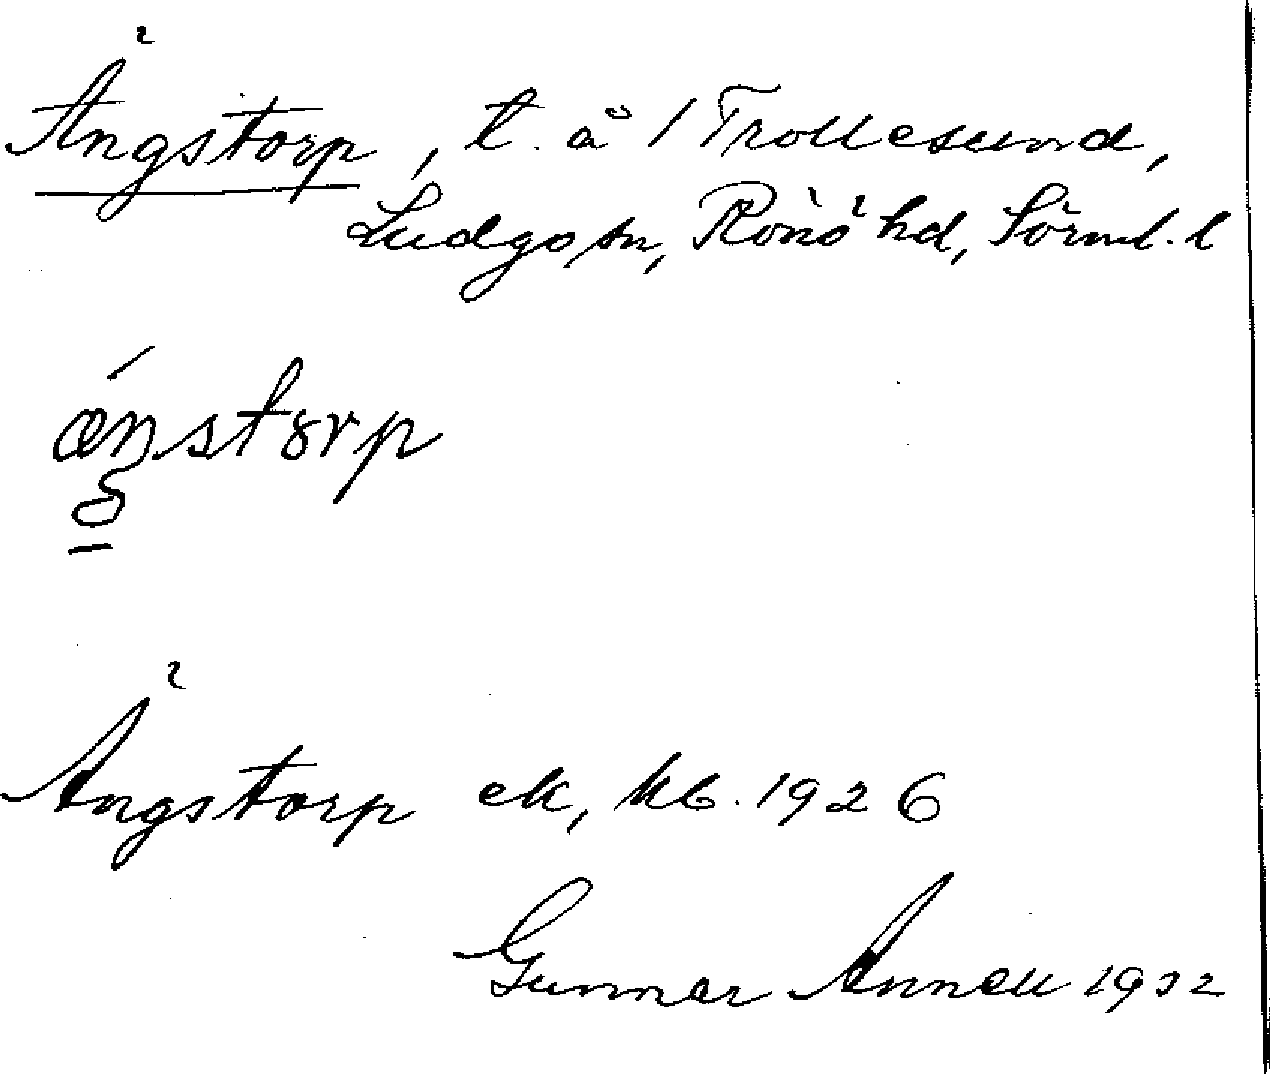 Ängstorp, t. å / Trollesund,
Ludgo sn, Rönö hd, Sörml. l
Ängstorp ek, kb. 1926
Gunnar Annell 1932